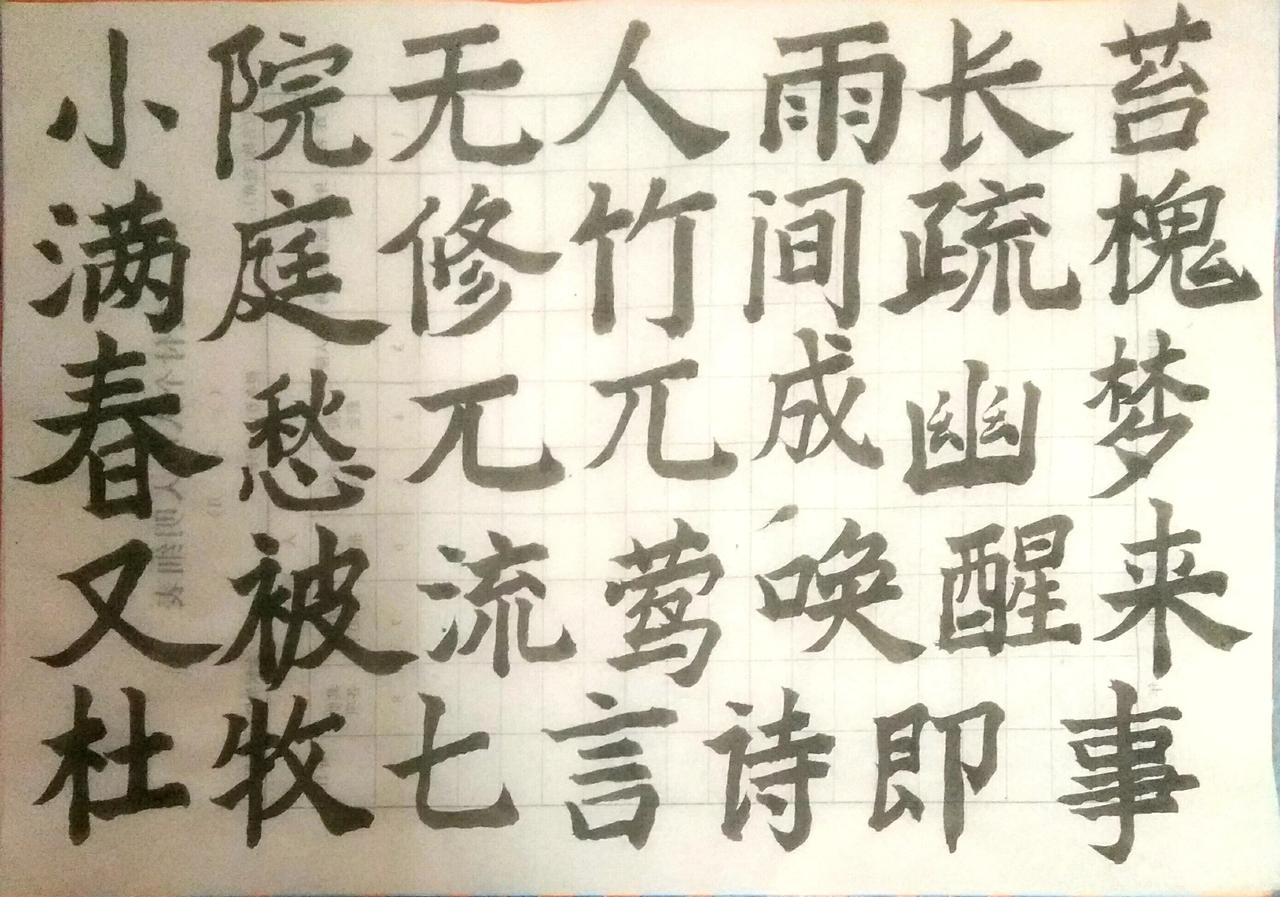 小院无人雨长苔
满庭修竹间疏槐
春愁兀兀成幽梦
又被流莺唤醒来
杜牧七言诗即事